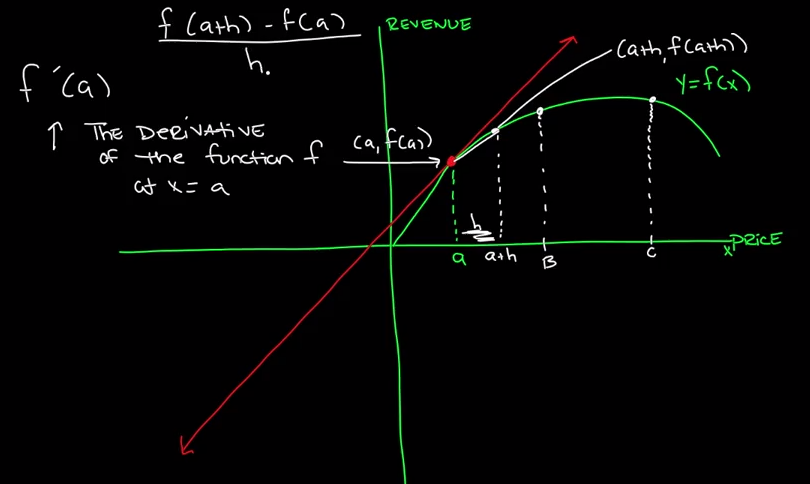 f(a+h) - f(a)
h.
f'(a)
↑ THE DERIVATIVE
of the function f
at x = a
REVENUE
(a, f(a))
(a+h, f(a+h))
y=f(x)
h
a
a+h
B
C
x
PRICE